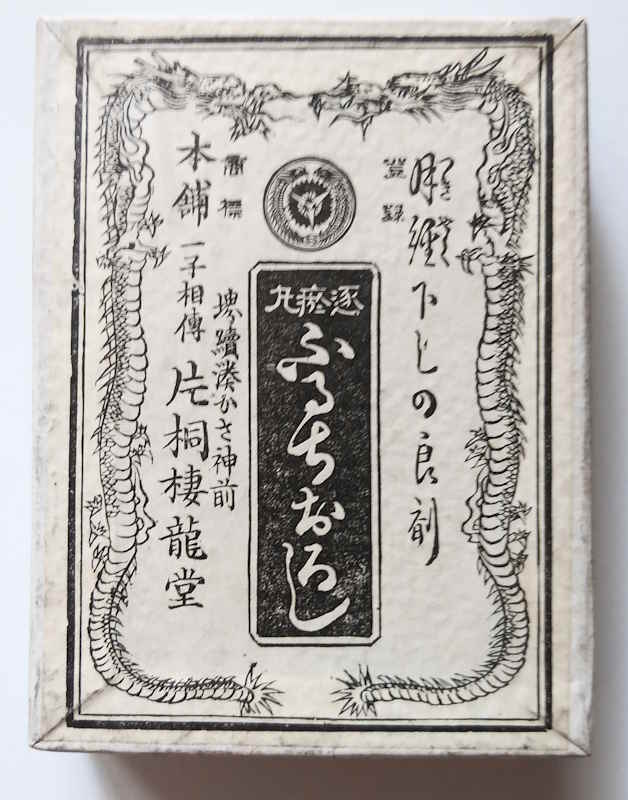 月經下しの良剤
登録
逐瘀丸
ふるちおろし
商標
堺續湊かさ神前
本舗 一子相傳 片桐棲龍堂